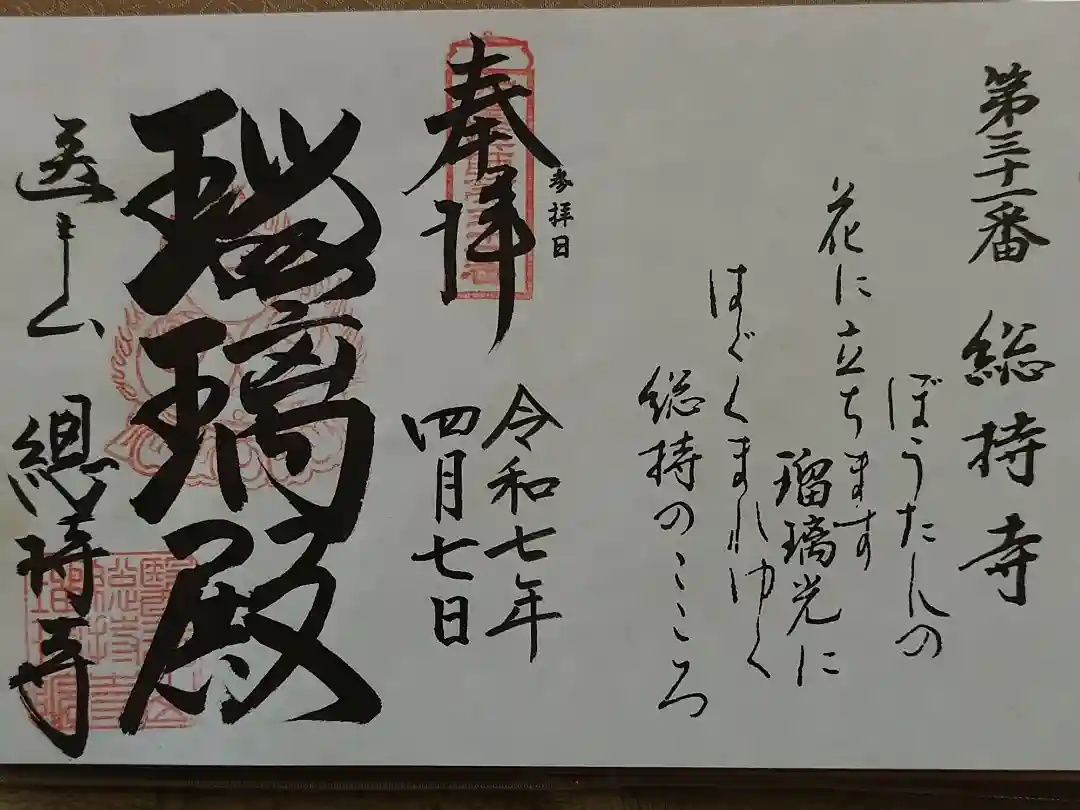 第三十一番 総持寺
ぼうたんの
花に立ちます
瑠璃光に
はぐくまれゆく
総持のこころ
参拝日
奉拝
令和七年
四月七日
瑠璃殿
總持寺